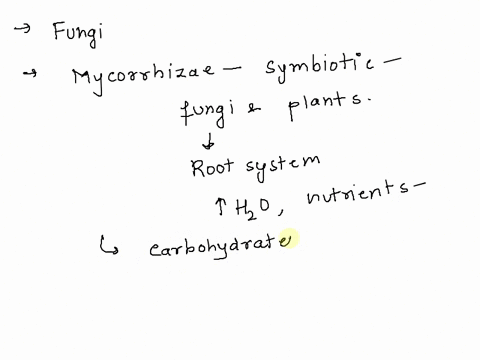 → Fungi
→ Mycorrhizae – symbiotic –
fungi & plants.
↓
Root system
↑ H₂O, nutrients –
↳ carbohydrate